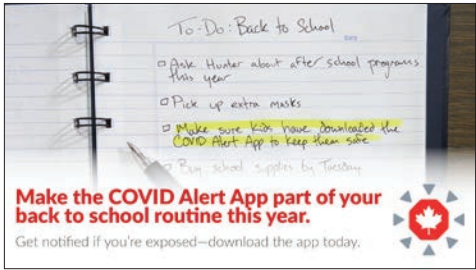 To-Do: Back to School
Ask Hunter about after school programs
this year
Pick up extra masks
Make sure kids have downloaded the
COVID Alert App to keep them safe
Buy school supplies by Tuesday
Make the COVID Alert App part of your
back to school routine this year.
Get notified if you're exposed—download the app today.